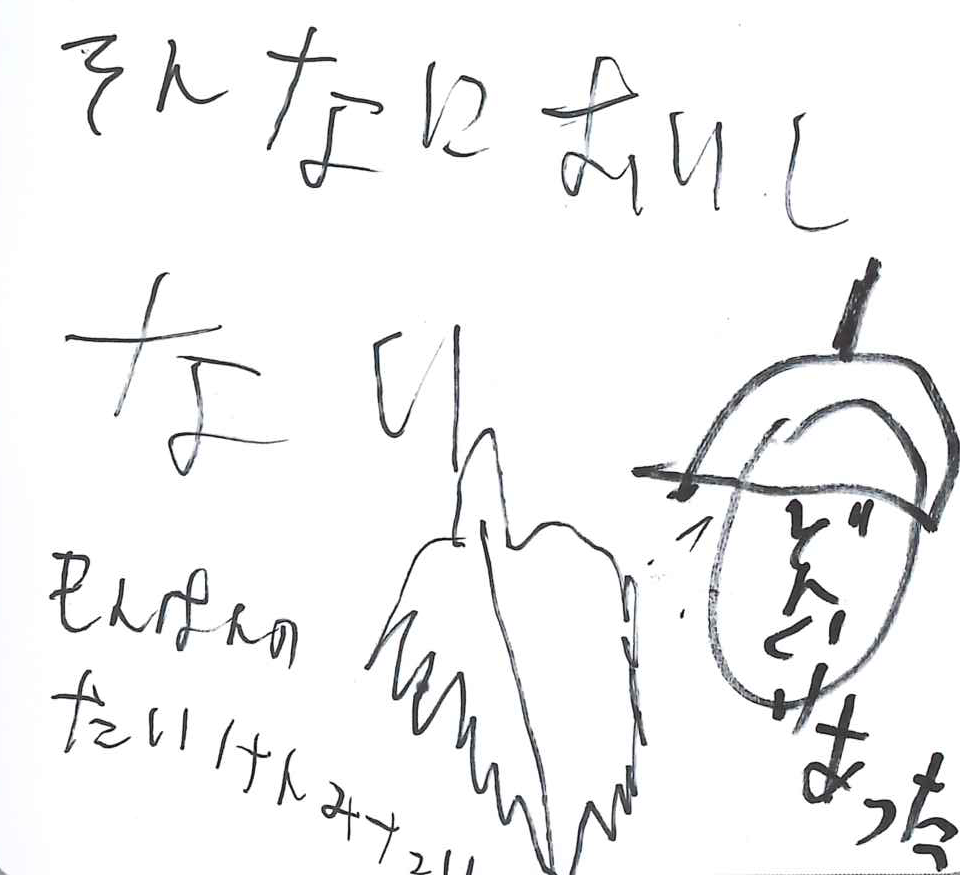 そんなにおいし
ない
もんばんの
たいけんみたい
どんぐり
あった